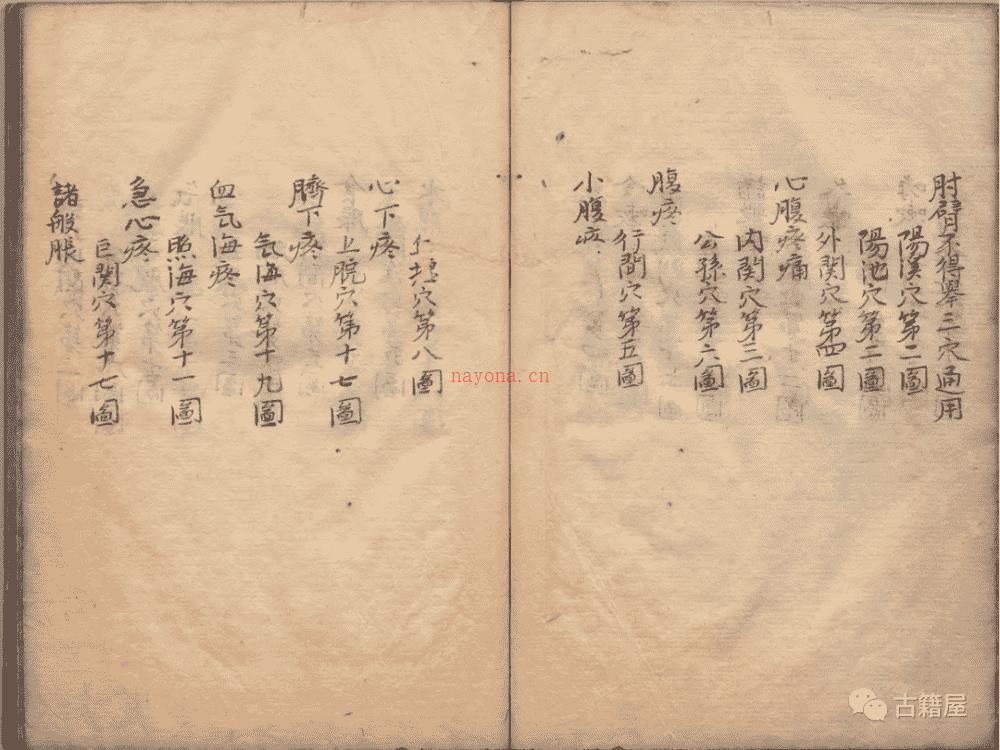 肘臂不得舉三穴通用
陽溪穴第二圖
陽池穴第二圖
外関穴第四圖
心腹疼痛
内関穴第三圖
公孫穴第六圖
腹疼
行間穴第五圖
小腹
穴第八圖
心下疼
上脘穴第十七圖
臍下疼
気海穴第十九圖
血気海疼
照海穴第十一圖
急心疼
巨関穴第十七圖
諸般脹
nayona.cn
古籍屋